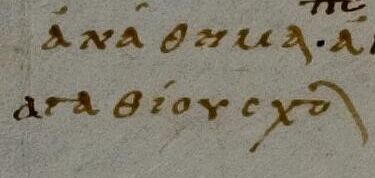 ἀνάθημα· ἀ
αγαθίου σχο